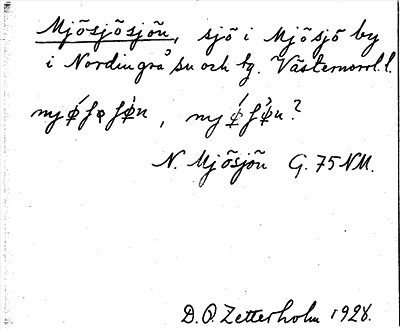 Mjösjösjön, sjö i Mjösjö by
i Nordingrå sn och tg. Västernorrl. l.
N. Mjösjön G. 75 NM.
D. O. Zetterholm 1928.